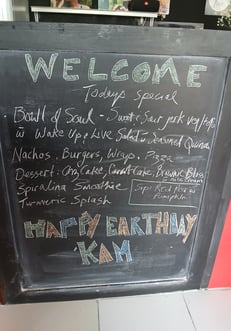 WELCOME
Todays Special
Bowl of Soul - Sweet & Sour Jerk
w Wake Up & Live Salad & Seasoned Quinoa
Nachos, Burgers, Wrap, Pizza
Dessert - Cake, Carrot Cake, Brownie Bliss
Spirulina Smoothie
Turmeric Splash
Sip: Red Pea w
Pumpkin
HAPPY EARTHDAY
KAM